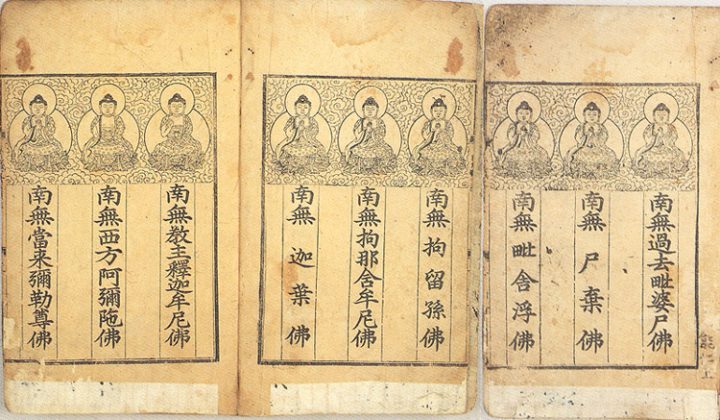 南無過去毗婆尸佛
南無尸棄佛
南無毗舍浮佛
南無拘留孫佛
南無拘那舍牟尼佛
南無迦葉佛
南無敎主釋迦牟尼佛
南無西方阿彌陁佛
南無當來彌勒尊佛